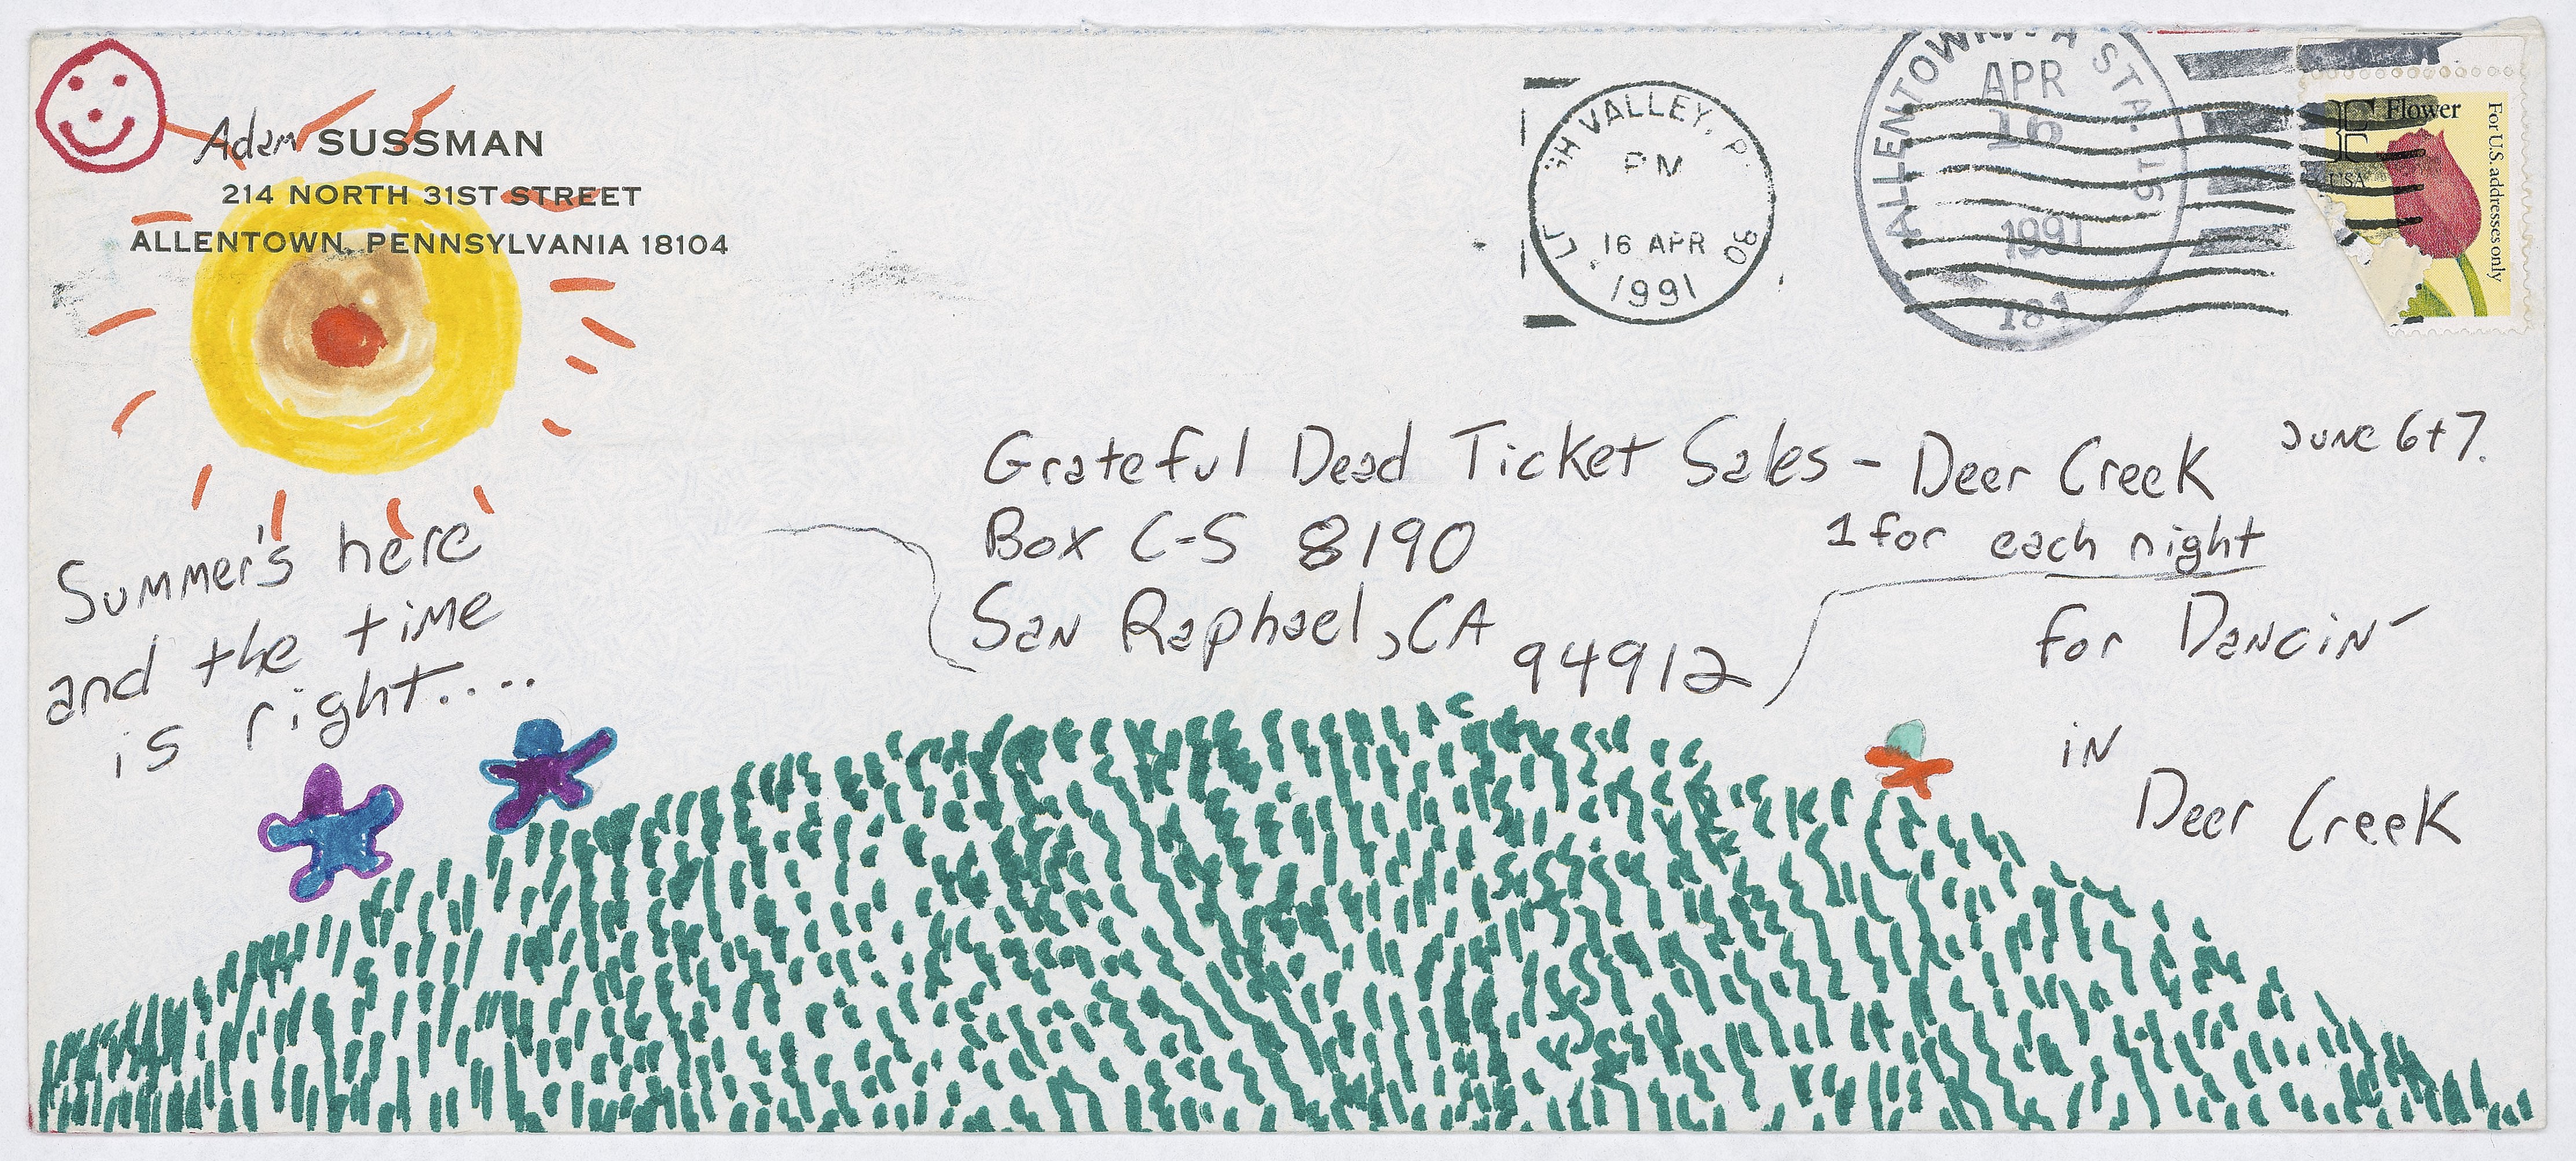 Adam SUSSMAN
214 NORTH 31ST STREET
ALLENTOWN, PENNSYLVANIA 18104
H VALLEY, P
PM
16 APR
1991
ALLENTOWN PA STA. 
APR
16
1991
181
F Flower
USA
For U.S. addresses only
Grateful Dead Ticket Sales - Deer Creek June 6+7.
Box C-S 8190
1 for each night
San Raphael, CA 94912
Summer's here
and the time
is right....
for Dancin'
in
Deer Creek